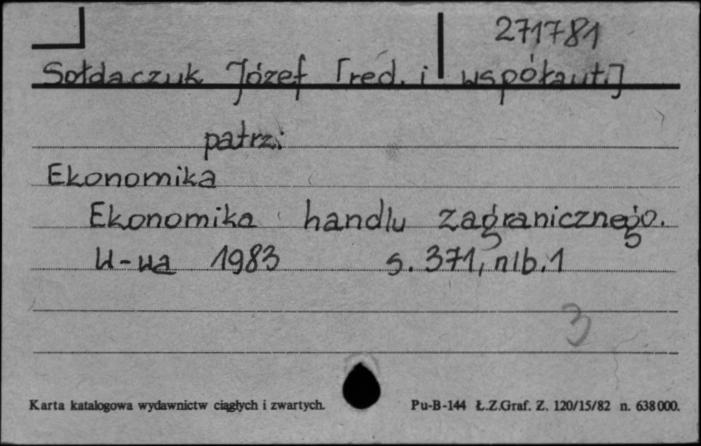 271781
Sołdaczuk Józef [red. i współaut.]
patrz:
Ekonomika
Ekonomika handlu zagranicznego.
W-wa 1983 s. 371, nlb. 1
3
Karta katalogowa wydawnictw ciągłych i zwartych. Pu-B-144 Ł.Z.Graf. Z. 120/15/82 n. 638000.